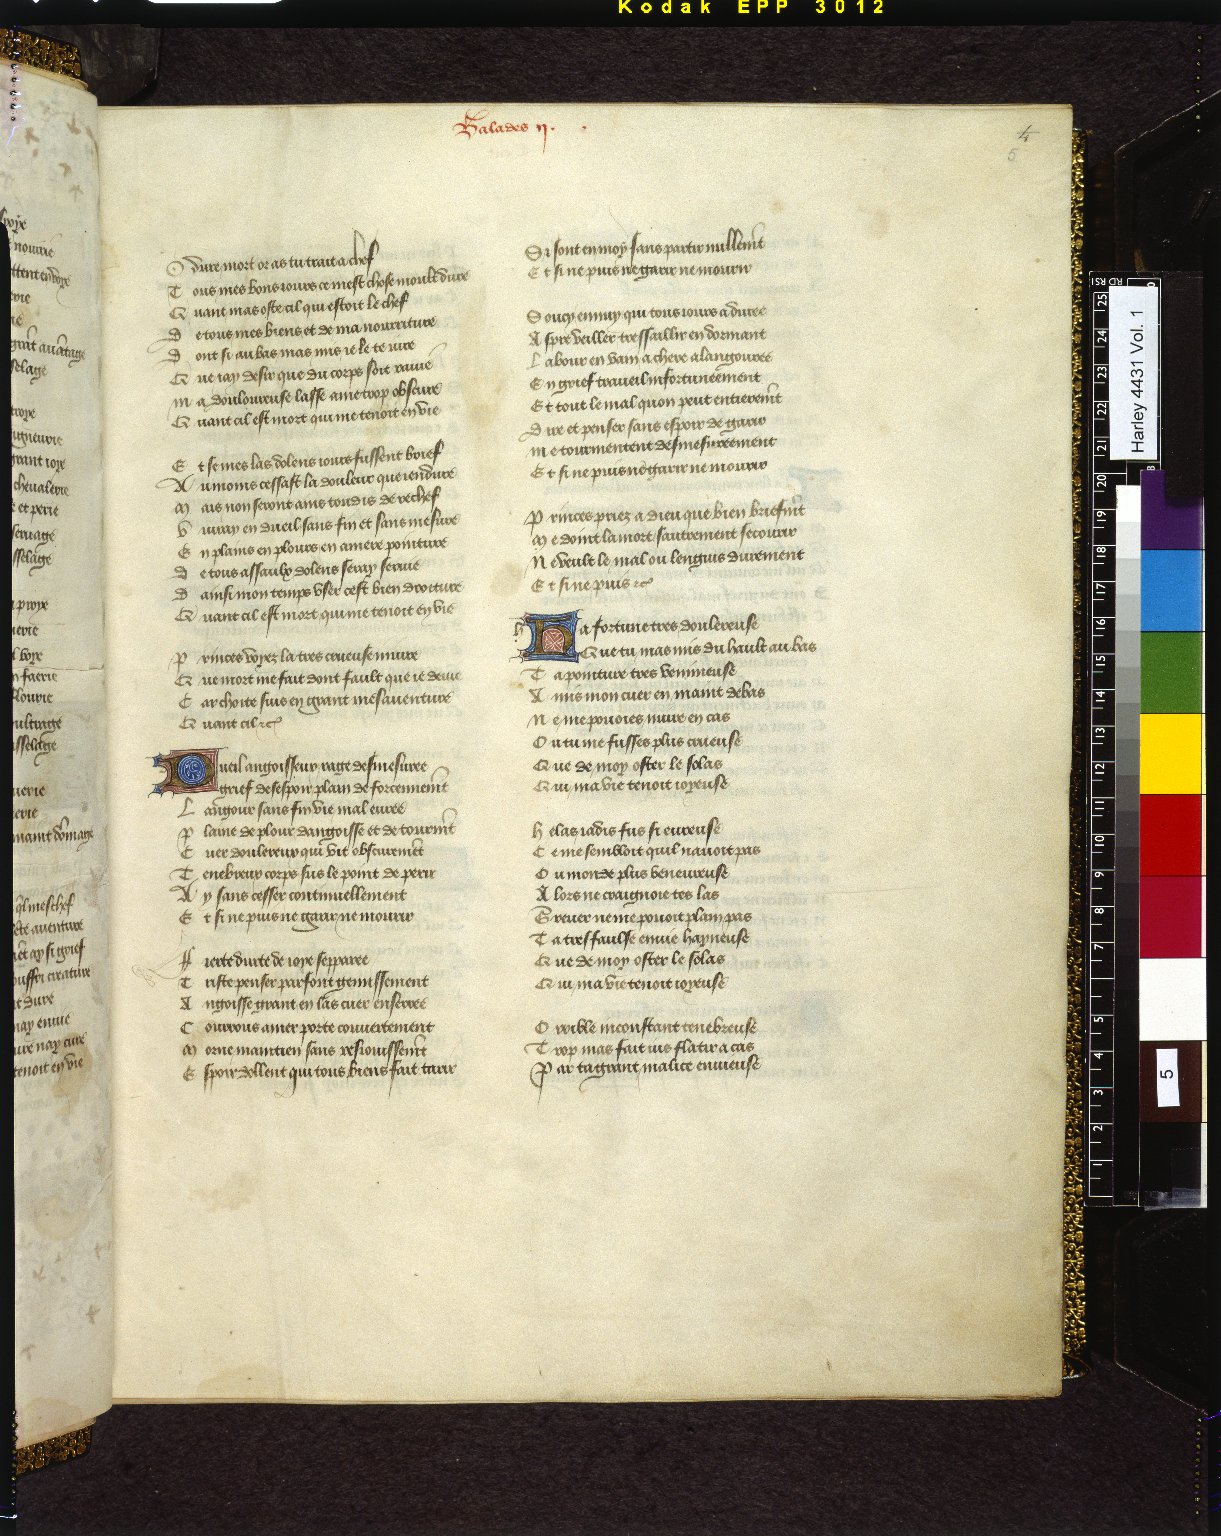 Kodak EPP 3012
Balades ij.
4
5
O dure mort or as tu trait a chef
Tous mes bons iours ce mest chose moult dure
Quant mas oste cil qui estoit le chef
De tous mes biens et de ma nourriture
Dont si au bas mas mis ie le te iure
Que iay desir que du corps soit rauie
Ma douloureuse lasse ame trop obscure
Quant cil est mort qui me tenoit en vie
Et se mes las dolens iours fussent brief
Au moins cessast la douleur que iendure
Mais non seront ains toudis de rechef
Viuray en dueil sans fin et sans mesure
En plains en plours en amere pointure
De tous assaulx dolens seray seruie
Dainsi mon temps vser cest bien droiture
Quant cil est mort qui me tenoit en vie
Princes voyez la tres crueuse iniure
Que mort me fait dont fault que ie deuie
Car choite suis en grant mesauenture
Quant cil &c
Dueil angoisseux rage desmesuree
grief desespoir plain de forcennemt
Langour sans fin vie maleuree
Plaine de plour dangoisse et de tourmt
Cuer doulereux qui vit obscuremt
Tenebreux corps sus le point de perir
Ay sans cesser continuellement
Et si ne puis ne garir ne mourir
Fierte durte de ioye separee
Triste penser parfont gemissement
Angoisse grant en las cuer enserree
Courrous amer porte couuertement
Morne maintien sans resiouissemt
Espoir dollent qui tous biens fait tarir
Si sont en moy sans partir nullemt
Et si ne puis ne garir ne mourir
Soucy ennuy qui tous iours a duree
Aspre veiller tressaillir en dormant
Labour en vain a chere alangouree
En grief traueil infortuneement
Et tout le mal quon peut entieremt
Dire et penser sans espoir de garir
Me tourmentent desmesureement
Et si ne puis ne garir ne mourir
Princes priez a dieu que bien briefmt
Me doint la mort sautrement secourir
Ne veult le mal ou lenguis durement
Et si ne puis &c
Ha fortune tres doulereuse
Que tu mas mis du hault au bas
Ta pointure tres venimeuse
A mis mon cuer en maint debas
Ne me pouoies nuire en cas
Ou tu me fusses plus crueuse
Que de moy oster le solas
Qui ma vie tenoit ioyeuse
Helas iadis fus si eureuse
Ce me sembloit quil nauoit pas
Ou monde plus beneureuse
Alors ne craignoie tes las
Greuer ne me pouoit plain pas
Ta tresfaulse enuie hayneuse
Que de moy oster le solas
Qui ma vie tenoit ioyeuse
Orrible inconstant tenebreuse
Trop mas fait ius flatir a cas
Par ta grant malice enuieuse
Harley 4431 Vol. 1
5